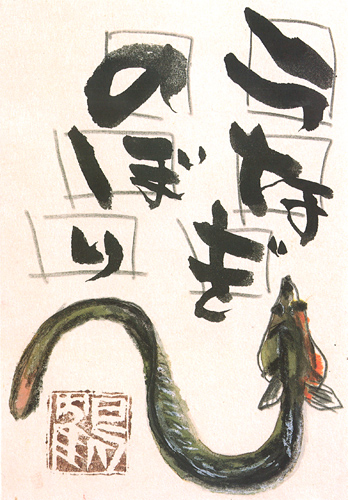 うなぎ
のぼり